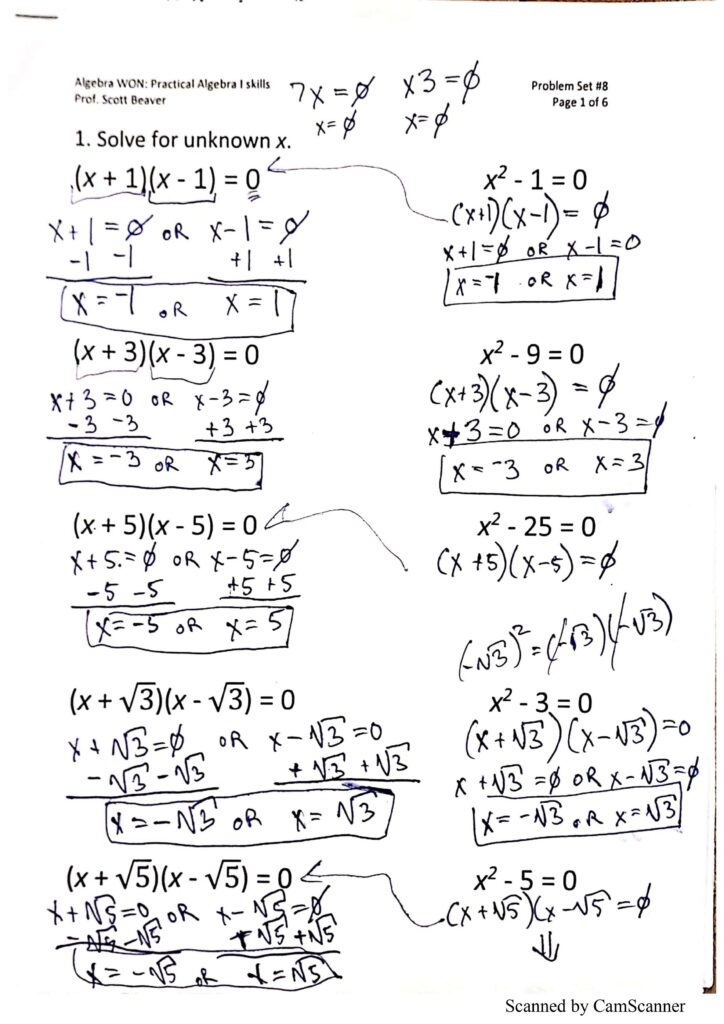 Algebra WON: Practical Algebra I skills
Prof. Scott Beaver
7x = ∅   x3 = ∅
x = ∅   x = ∅
Problem Set #8
Page 1 of 6
1. Solve for unknown x.
(x + 1)(x - 1) = 0
x + 1 = ∅ OR x - 1 = ∅
-1 -1   +1 +1
x = -1 OR x = 1
x² - 1 = 0
(x+1)(x-1) = ∅
x+1 = ∅ OR x-1 = 0
x = -1 OR x = 1
(x + 3)(x - 3) = 0
x+3 = 0 OR x-3 = ∅
-3 -3   +3 +3
x = -3 OR x = 3
x² - 9 = 0
(x+3)(x-3) = ∅
x+3 = 0 OR x-3 = ∅
x = -3 OR x = 3
(x + 5)(x - 5) = 0
x+5 = ∅ OR x-5 = ∅
-5 -5   +5 +5
x = -5 OR x = 5
x² - 25 = 0
(x+5)(x-5) = ∅
(-√3)² = (-√3)(-√3)
(x + √3)(x - √3) = 0
x + √3 = ∅ OR x - √3 = 0
-√3 -√3   +√3 +√3
x = -√3 OR x = √3
x² - 3 = 0
(x+√3)(x-√3) = 0
x + √3 = ∅ OR x - √3 = ∅
x = -√3 OR x = √3
(x + √5)(x - √5) = 0
x + √5 = 0 OR x - √5 = ∅
-√5 -√5   +√5 +√5
x = -√5 OR x = √5
x² - 5 = 0
(x+√5)(x-√5 = ∅
Scanned by CamScanner